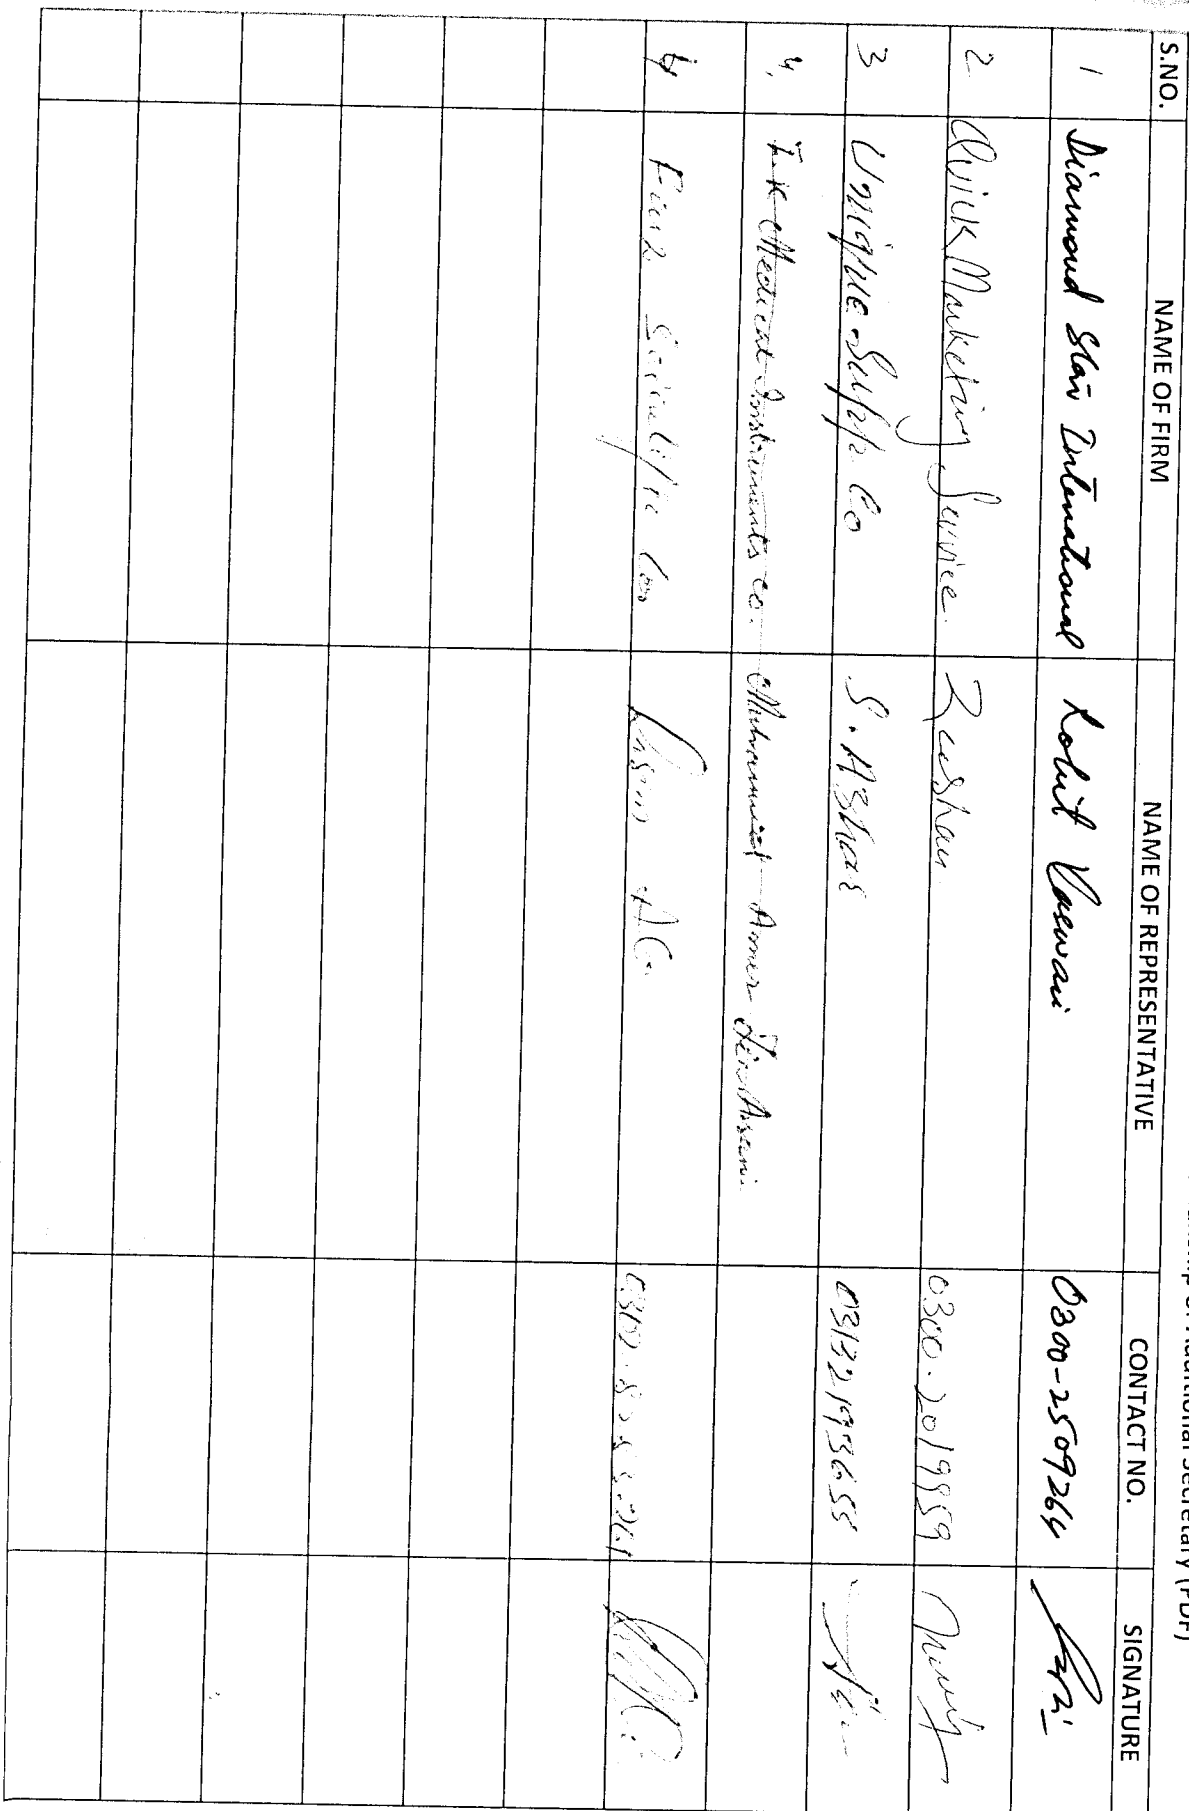 of Additional Secretary (PDF)
S.NO. NAME OF FIRM NAME OF REPRESENTATIVE CONTACT NO. SIGNATURE
1 Diamond Star International Rohit Vaswani 0300-2509264
2 Quick Marketing Service. Zeeshan 0300-2019959
3 Unique Supply Co S. Azhar 03132193655
4. F.K Medical Instruments co. Muhammad Amer
4 Faiz Scientific Co AG